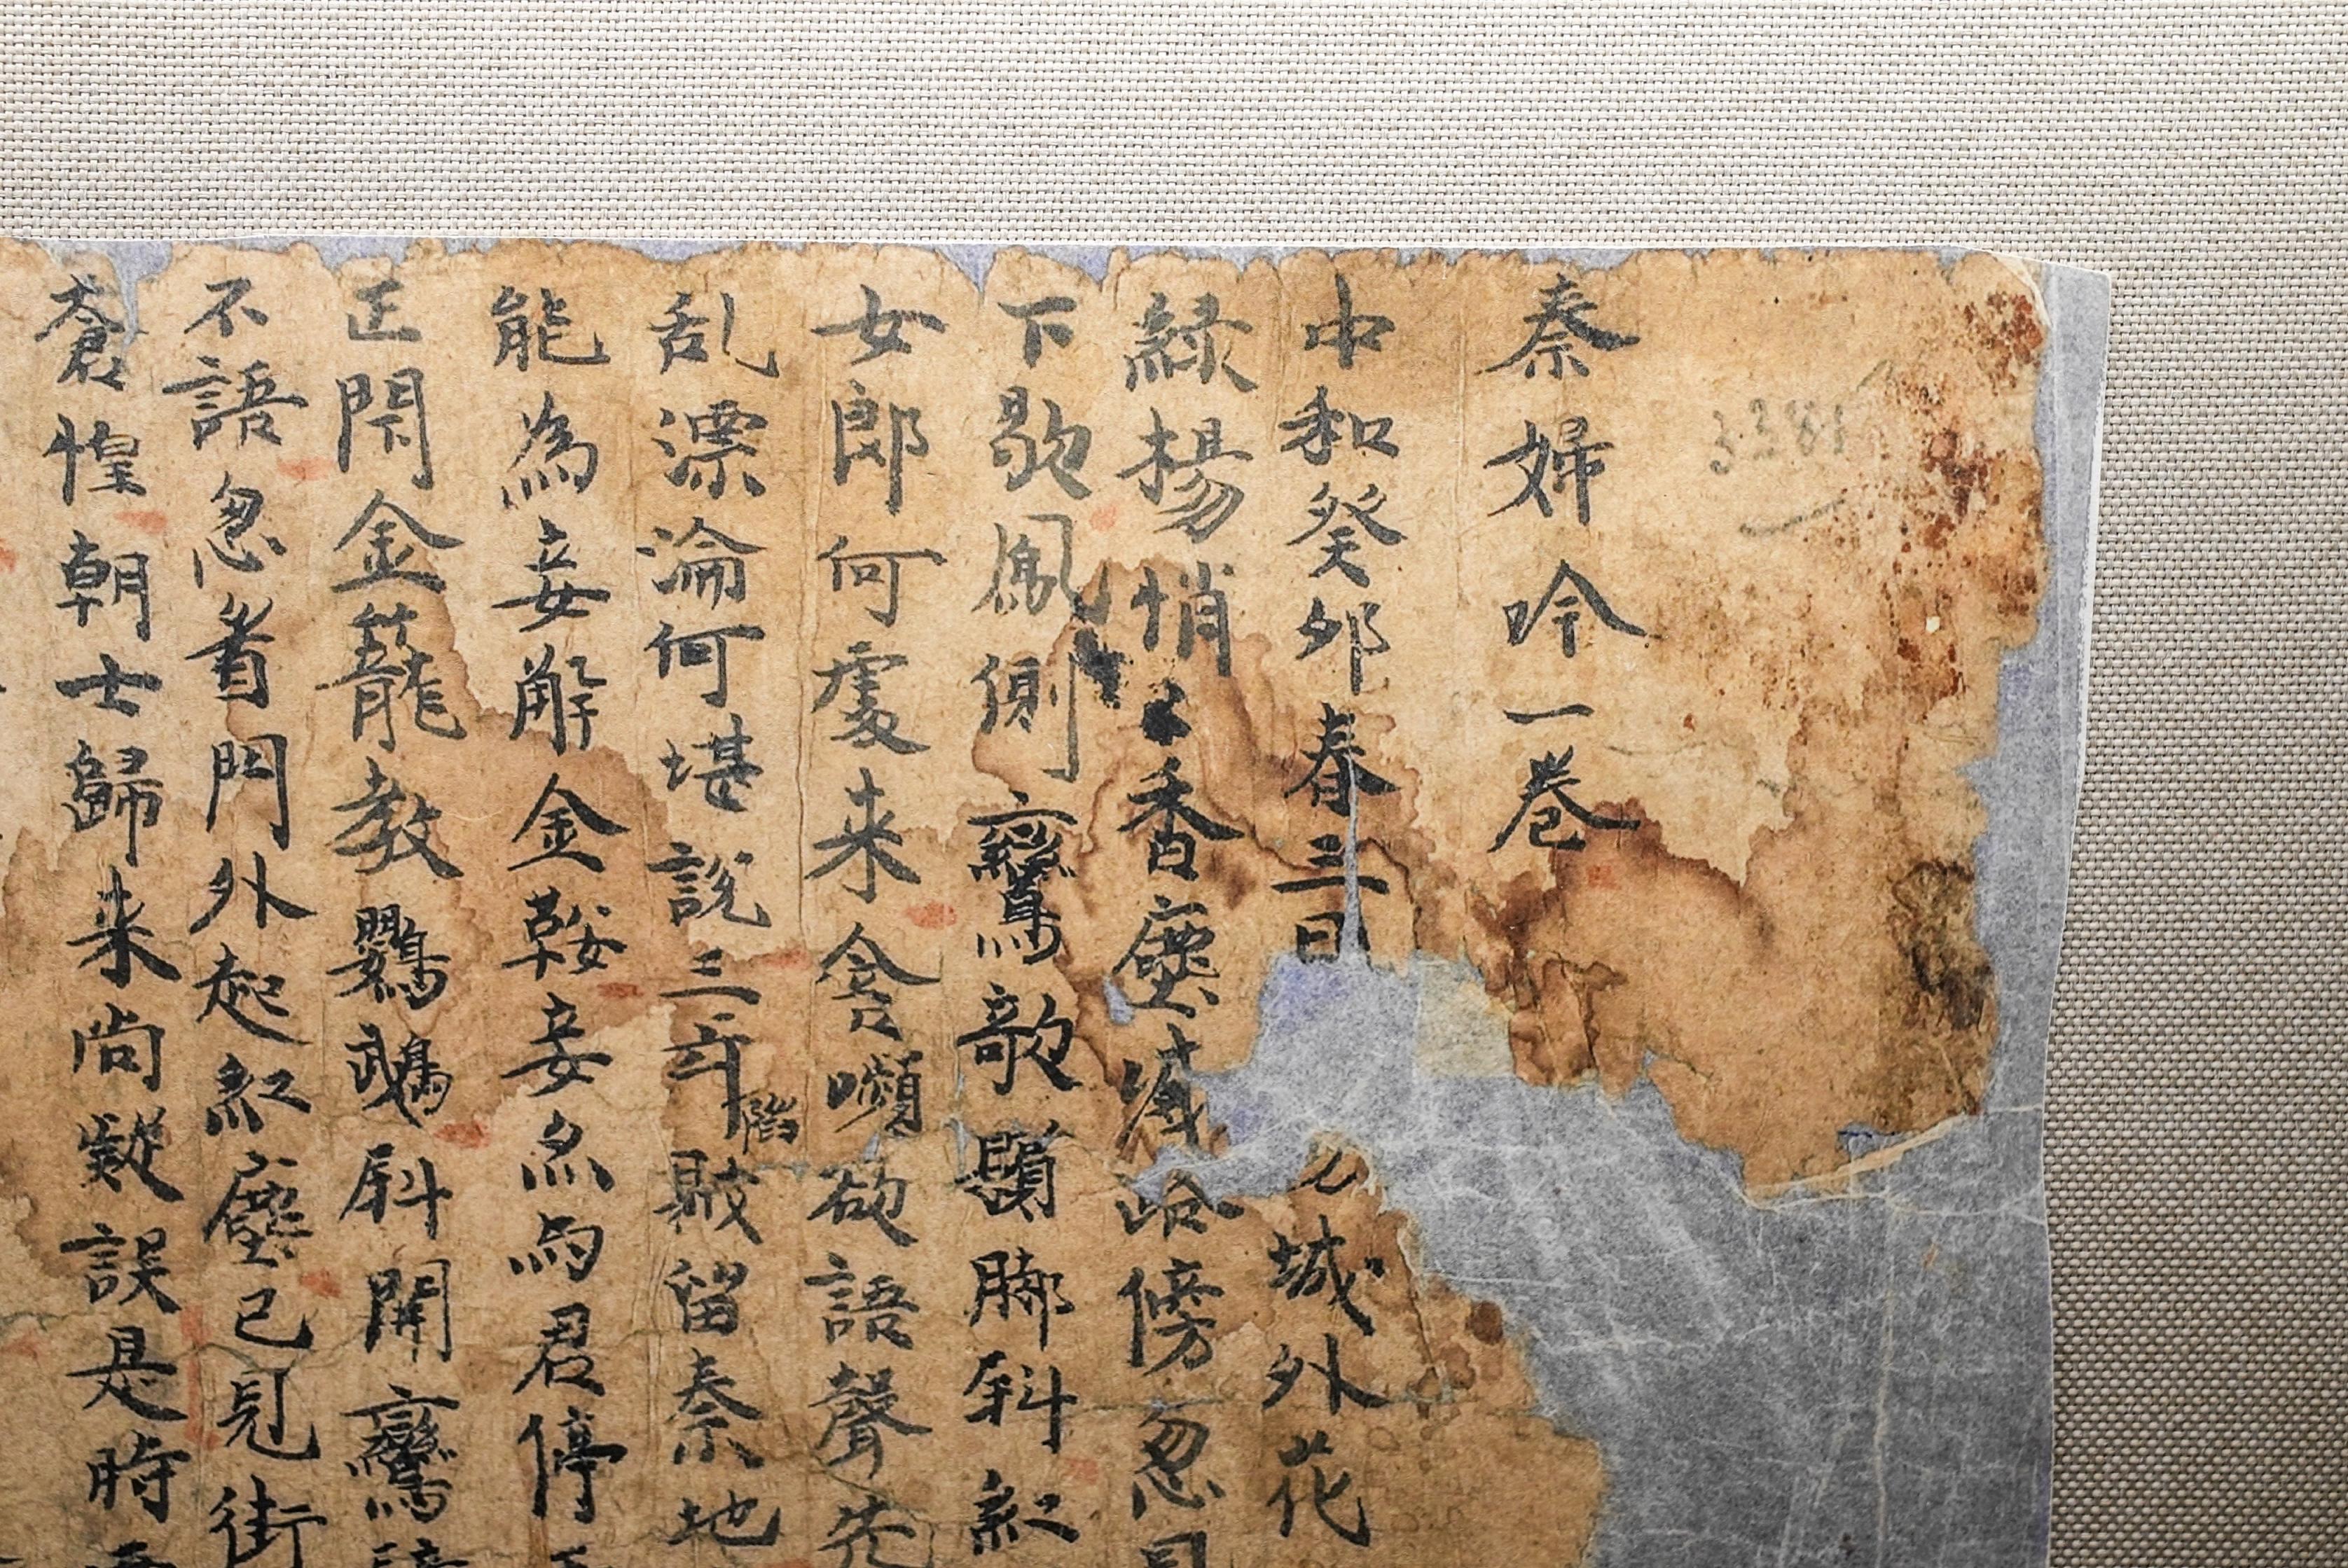 3381
秦婦吟一卷
中和癸卯春三月 城外花
綠楊悄〻香塵滅路傍忽見
下歇鳳側鸞歌鬢脚斜紅
女郎何處来含嚬欲語聲先
乱漂淪何堪說三年陷賊留秦地
能為妾解金鞍妾亦与君停
閇金蘢教鸚鵡斜開鸞
不語忽看門外起紅塵已見街
蒼惶朝士歸来尚疑誤是時